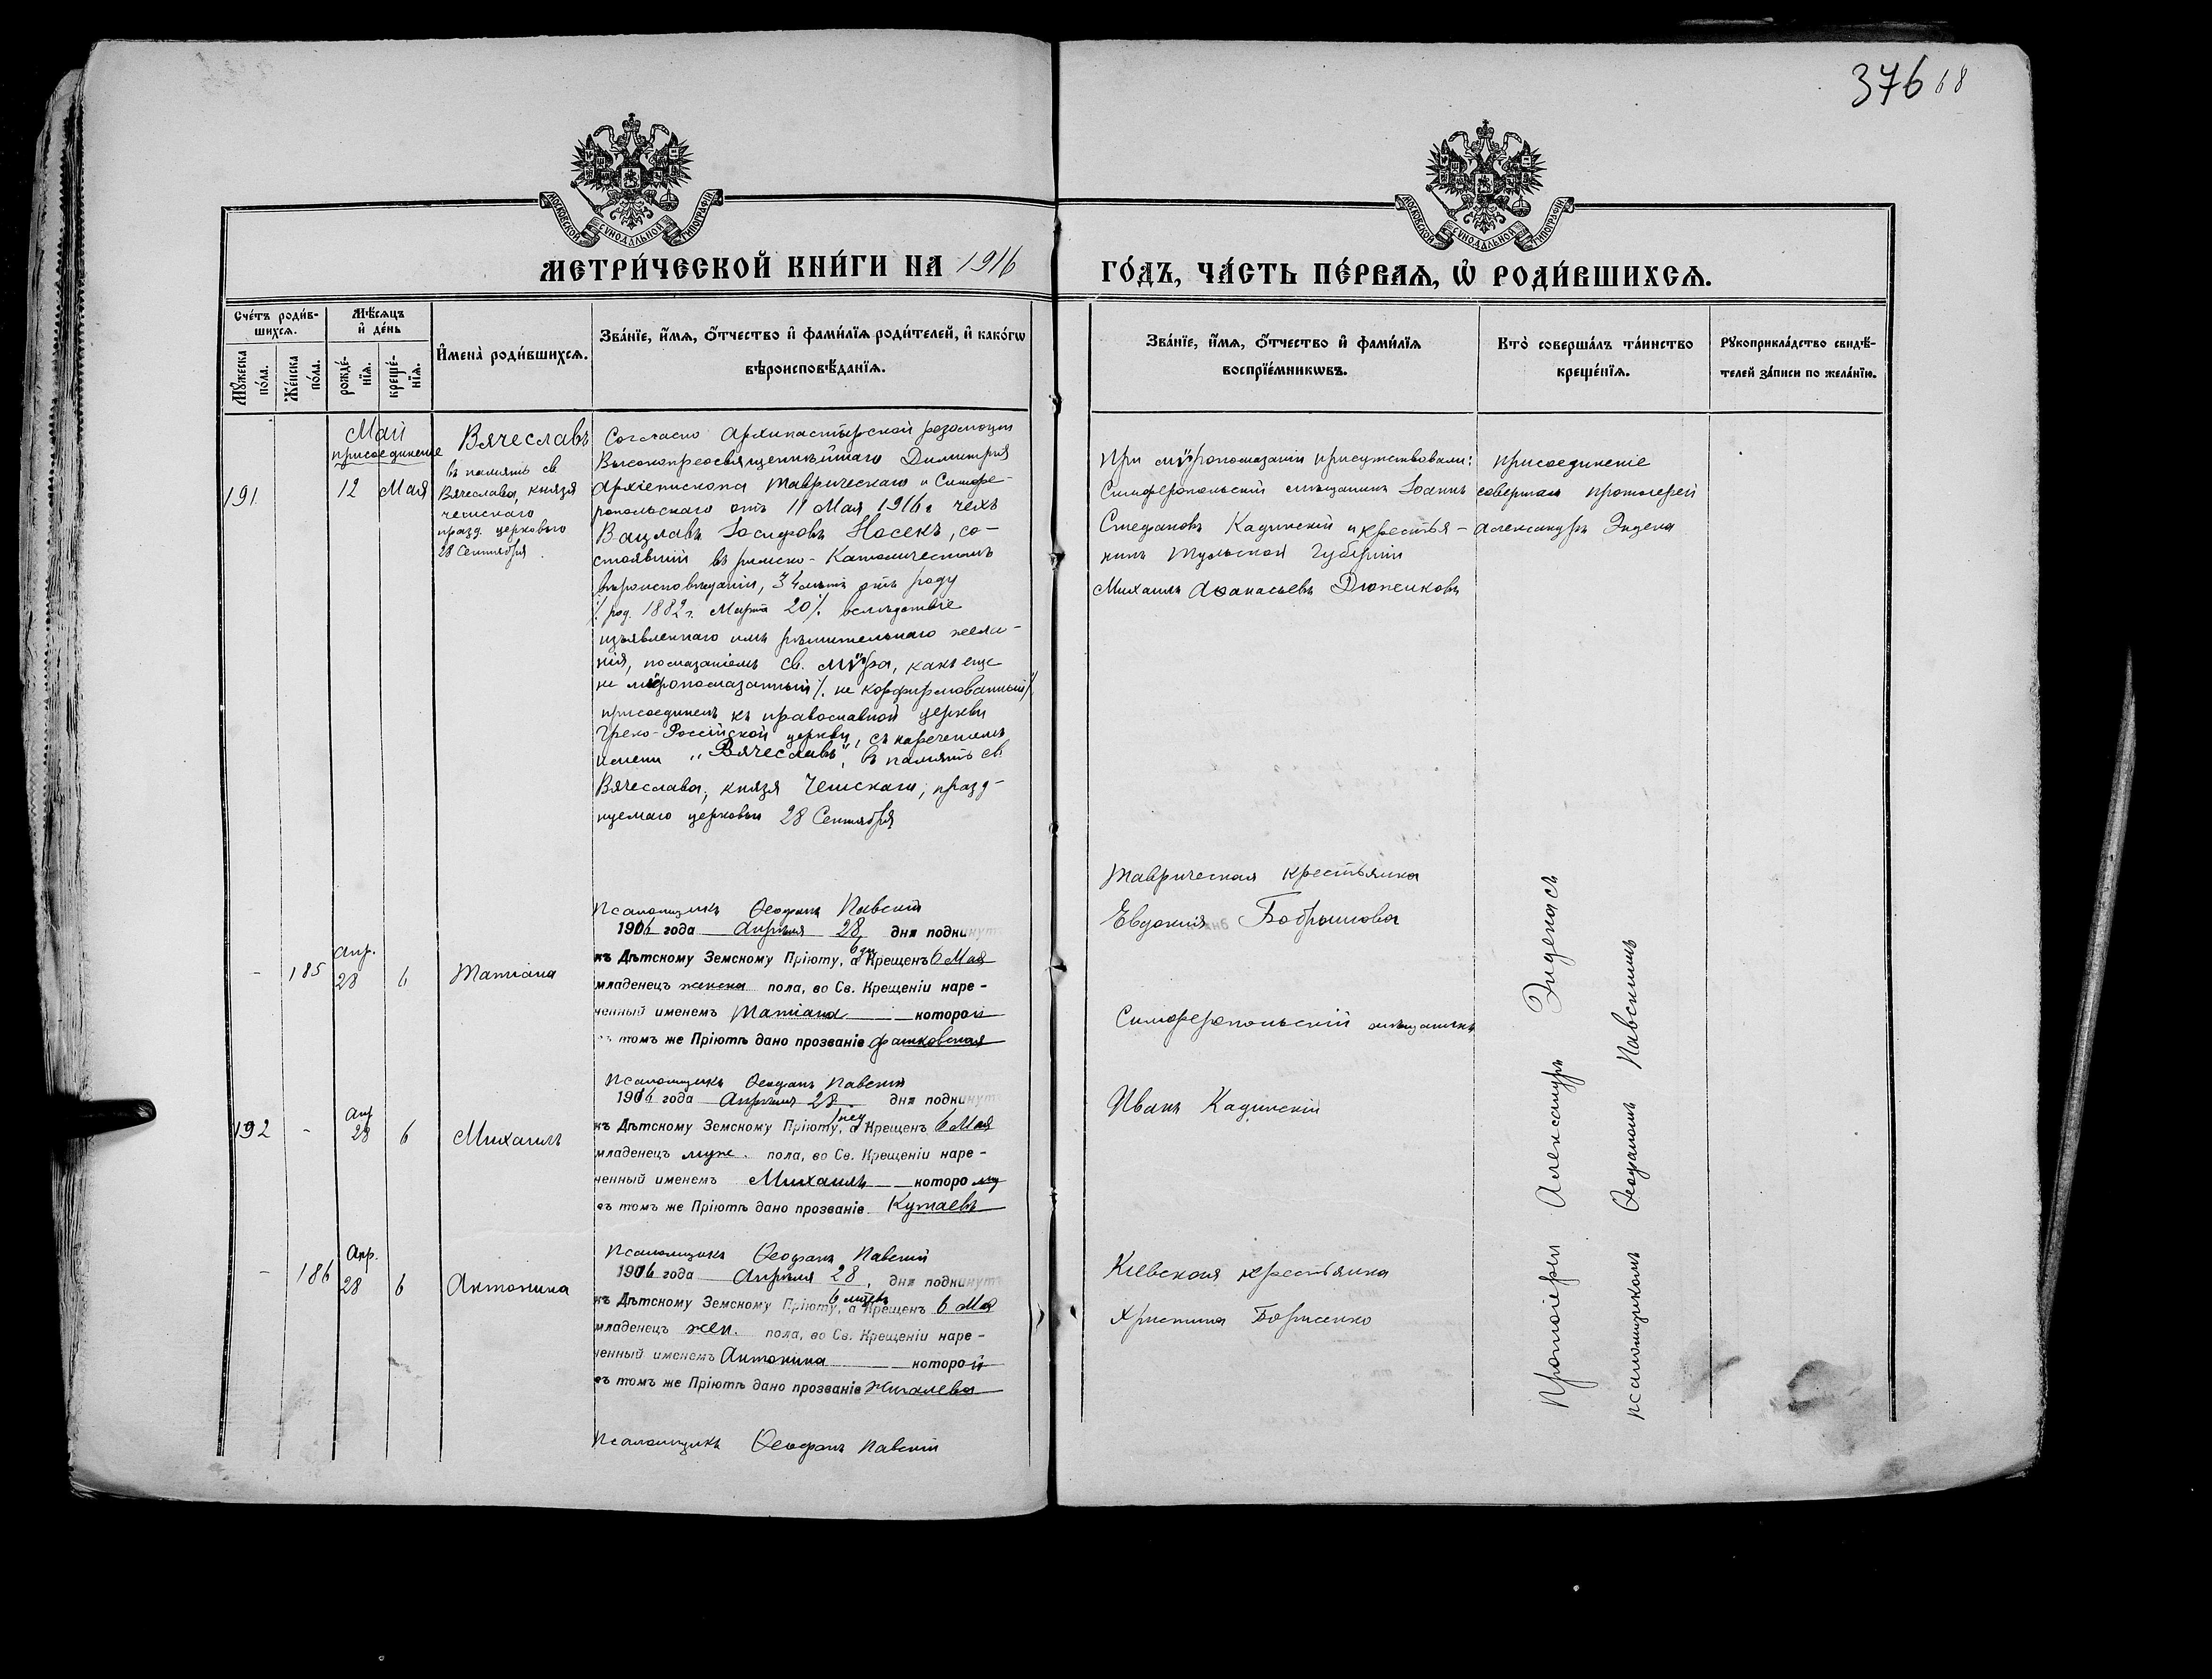 376 68
МОСКОВСКОЙ СУНОДАЛЬНОЙ ТИПОГРАФІИ
МОСКОВСКОЙ СУНОДАЛЬНОЙ ТИПОГРАФІИ
МЕТРИ́ЧЕСКОЙ КНИ́ГИ НА 1916
ГО́ДЪ, ЧА́СТЬ ПЕ́РВАѦ, Ѡ҆ РОДИ́ВШИХСѦ.
Сче́тъ роди́в-
шихсѧ.
Мꙋ́жеска
по́ла.
Же́нска
по́ла.
Мѣ́сѧцъ
и҆ де́нь
рожде́-
нїѧ.
креще́-
нїѧ.
И҆мена̀ роди́вшихсѧ.
Зва́нїе, и҆́мѧ, ѻ҆́тчество и҆ фами́лїѧ роди́телей, и҆ како́гѡ
вѣроисповѣ́данїѧ.
Зва́нїе, и҆́мѧ, ѻ҆́тчество и҆ фами́лїѧ
воспрїе́мникѡвъ.
Кто̀ соверша́лъ та́инство
креще́нїѧ.
Рꙋкоприкла́дство свидѣ́-
телей за́писи по жела́нїю.
191
Май
присоединеніе
12 Мая
Вячеславъ
въ память св.
Вячеслава, князя
чешскаго
празд. церковью
28 Сентября.
Согласно Архипастырской резолюціи
Высокопреосвященнѣйшаго Димитрія
Архіепископа Таврическаго и Симфе-
ропольскаго отъ 11 Мая 1916 г чехъ
Вацлавъ Іосифовъ Носекъ, со-
стоявшій въ римско-Католическомъ
вѣроисповѣданіи, 34 лѣтъ отъ роду
/. род. 1882 г. Марта 20 /. вслѣдствіе
изъявленнаго имъ рѣшительнаго жела-
нія, помазаніемъ св. мѵра, какъ еще
не мѵропомазанный /. не конфирмованный /.
присоединенъ къ православной церкви
Греко-Россійской церкви, съ нареченіемъ
имени „Вячеславъ", въ память св.
Вячеслава, князя Чешскаго, празд-
нуемаго церковью 28 Сентября
Псаломщикъ Ѳеофанъ Павскій
При мѵропомазаніи присутствовали:
Симферопольскій мѣщанинъ Іоаннъ
Стефановъ Кадинскій и крестья-
нинъ Тульской губерніи
Михаилъ Аѳанасьевъ Дюжиковъ
присоединеніе
совершалъ протоіерей
Александръ Эндека
- 185
Апр.
28 6
Татіана
1916 года Апрѣля 28 дня подкинут
къ Дѣтскому Земскому Пріюту, а Крещенъ 6 Мая
6 дн
младенецъ женска пола, во Св. Крещеніи наре-
ченный именемъ Татіана которой
въ томъ же Пріютѣ дано прозваніе
Псаломщикъ Ѳеофанъ Павскій
Таврическая крестьянка
Евдокия
192 -
Апр
28 6
Михаилъ
1916 года Апрѣля 28 дня подкинут
къ Дѣтскому Земскому Пріюту, а Крещенъ 6 Мая
1 нед
младенецъ муж. пола, во Св. Крещеніи наре-
ченный именемъ Михаилъ которому
въ томъ же Пріютѣ дано прозваніе
Псаломщикъ Ѳеофанъ Павскій
Симферопольскій мѣщанинъ
Иванъ Кадинскій
- 186
Апр.
28 6
Антонина
1916 года Апрѣля 28, дня подкинут
къ Дѣтскому Земскому Пріюту, а Крещенъ 6 Мая
младенецъ жен. пола, во Св. Крещеніи наре-
ченный именемъ Антонина которой
въ томъ же Пріютѣ дано прозваніе
Псаломщикъ Ѳеофанъ Павскій
Кіевская крестьянка
Христина Борисенко
Протоіерей Александръ
псаломщикомъ Ѳеофаномъ Павскимъ